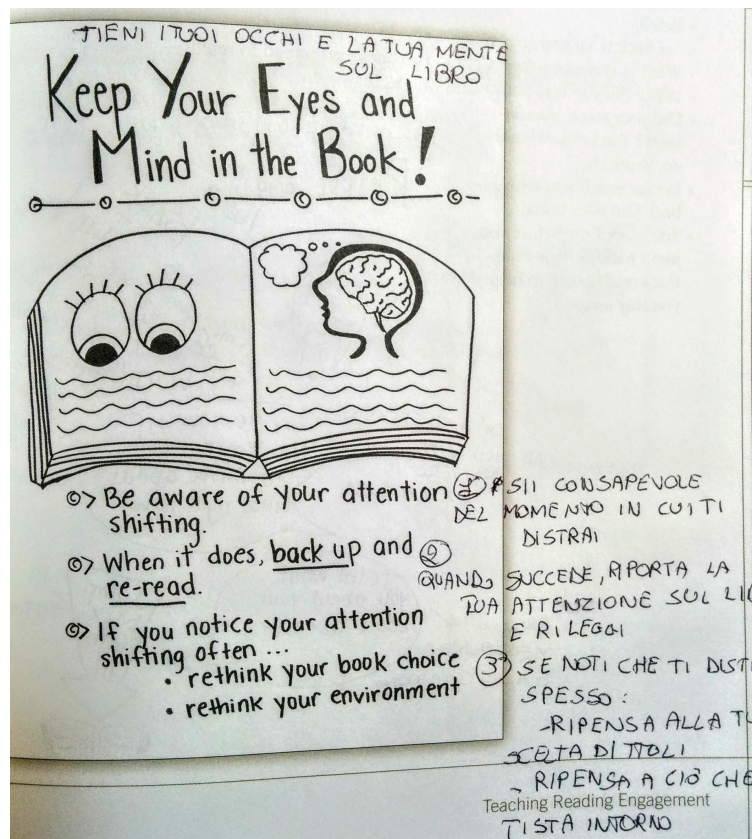 TIENI I TUOI OCCHI E LA TUA MENTE
SUL LIBRO
Keep Your Eyes and
Mind in the Book!
Be aware of your attention
shifting.
When it does, back up and
re-read.
If you notice your attention
shifting often ...
• rethink your book choice
• rethink your environment
1 SII CONSAPEVOLE
DEL MOMENTO IN CUI TI
DISTRAI
2
QUANDO SUCCEDE, RIPORTA LA
TUA ATTENZIONE SUL
E RILEGGI
3 SE NOTI CHE TI
SPESSO:
-RIPENSA ALLA
SCELTA DI TITOLI
- RIPENSA A CIÒ CHE
Teaching Reading Engagement
TI STA INTORNO